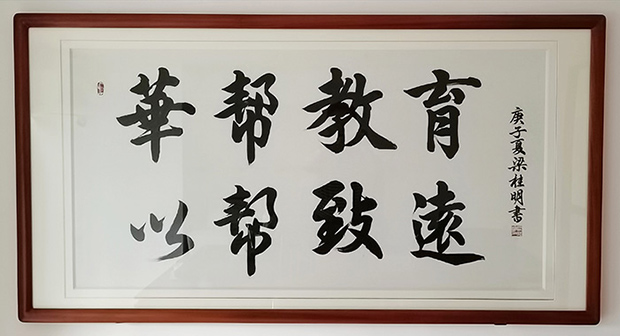 華帮教育
以幫致遠
庚子夏梁桂明書